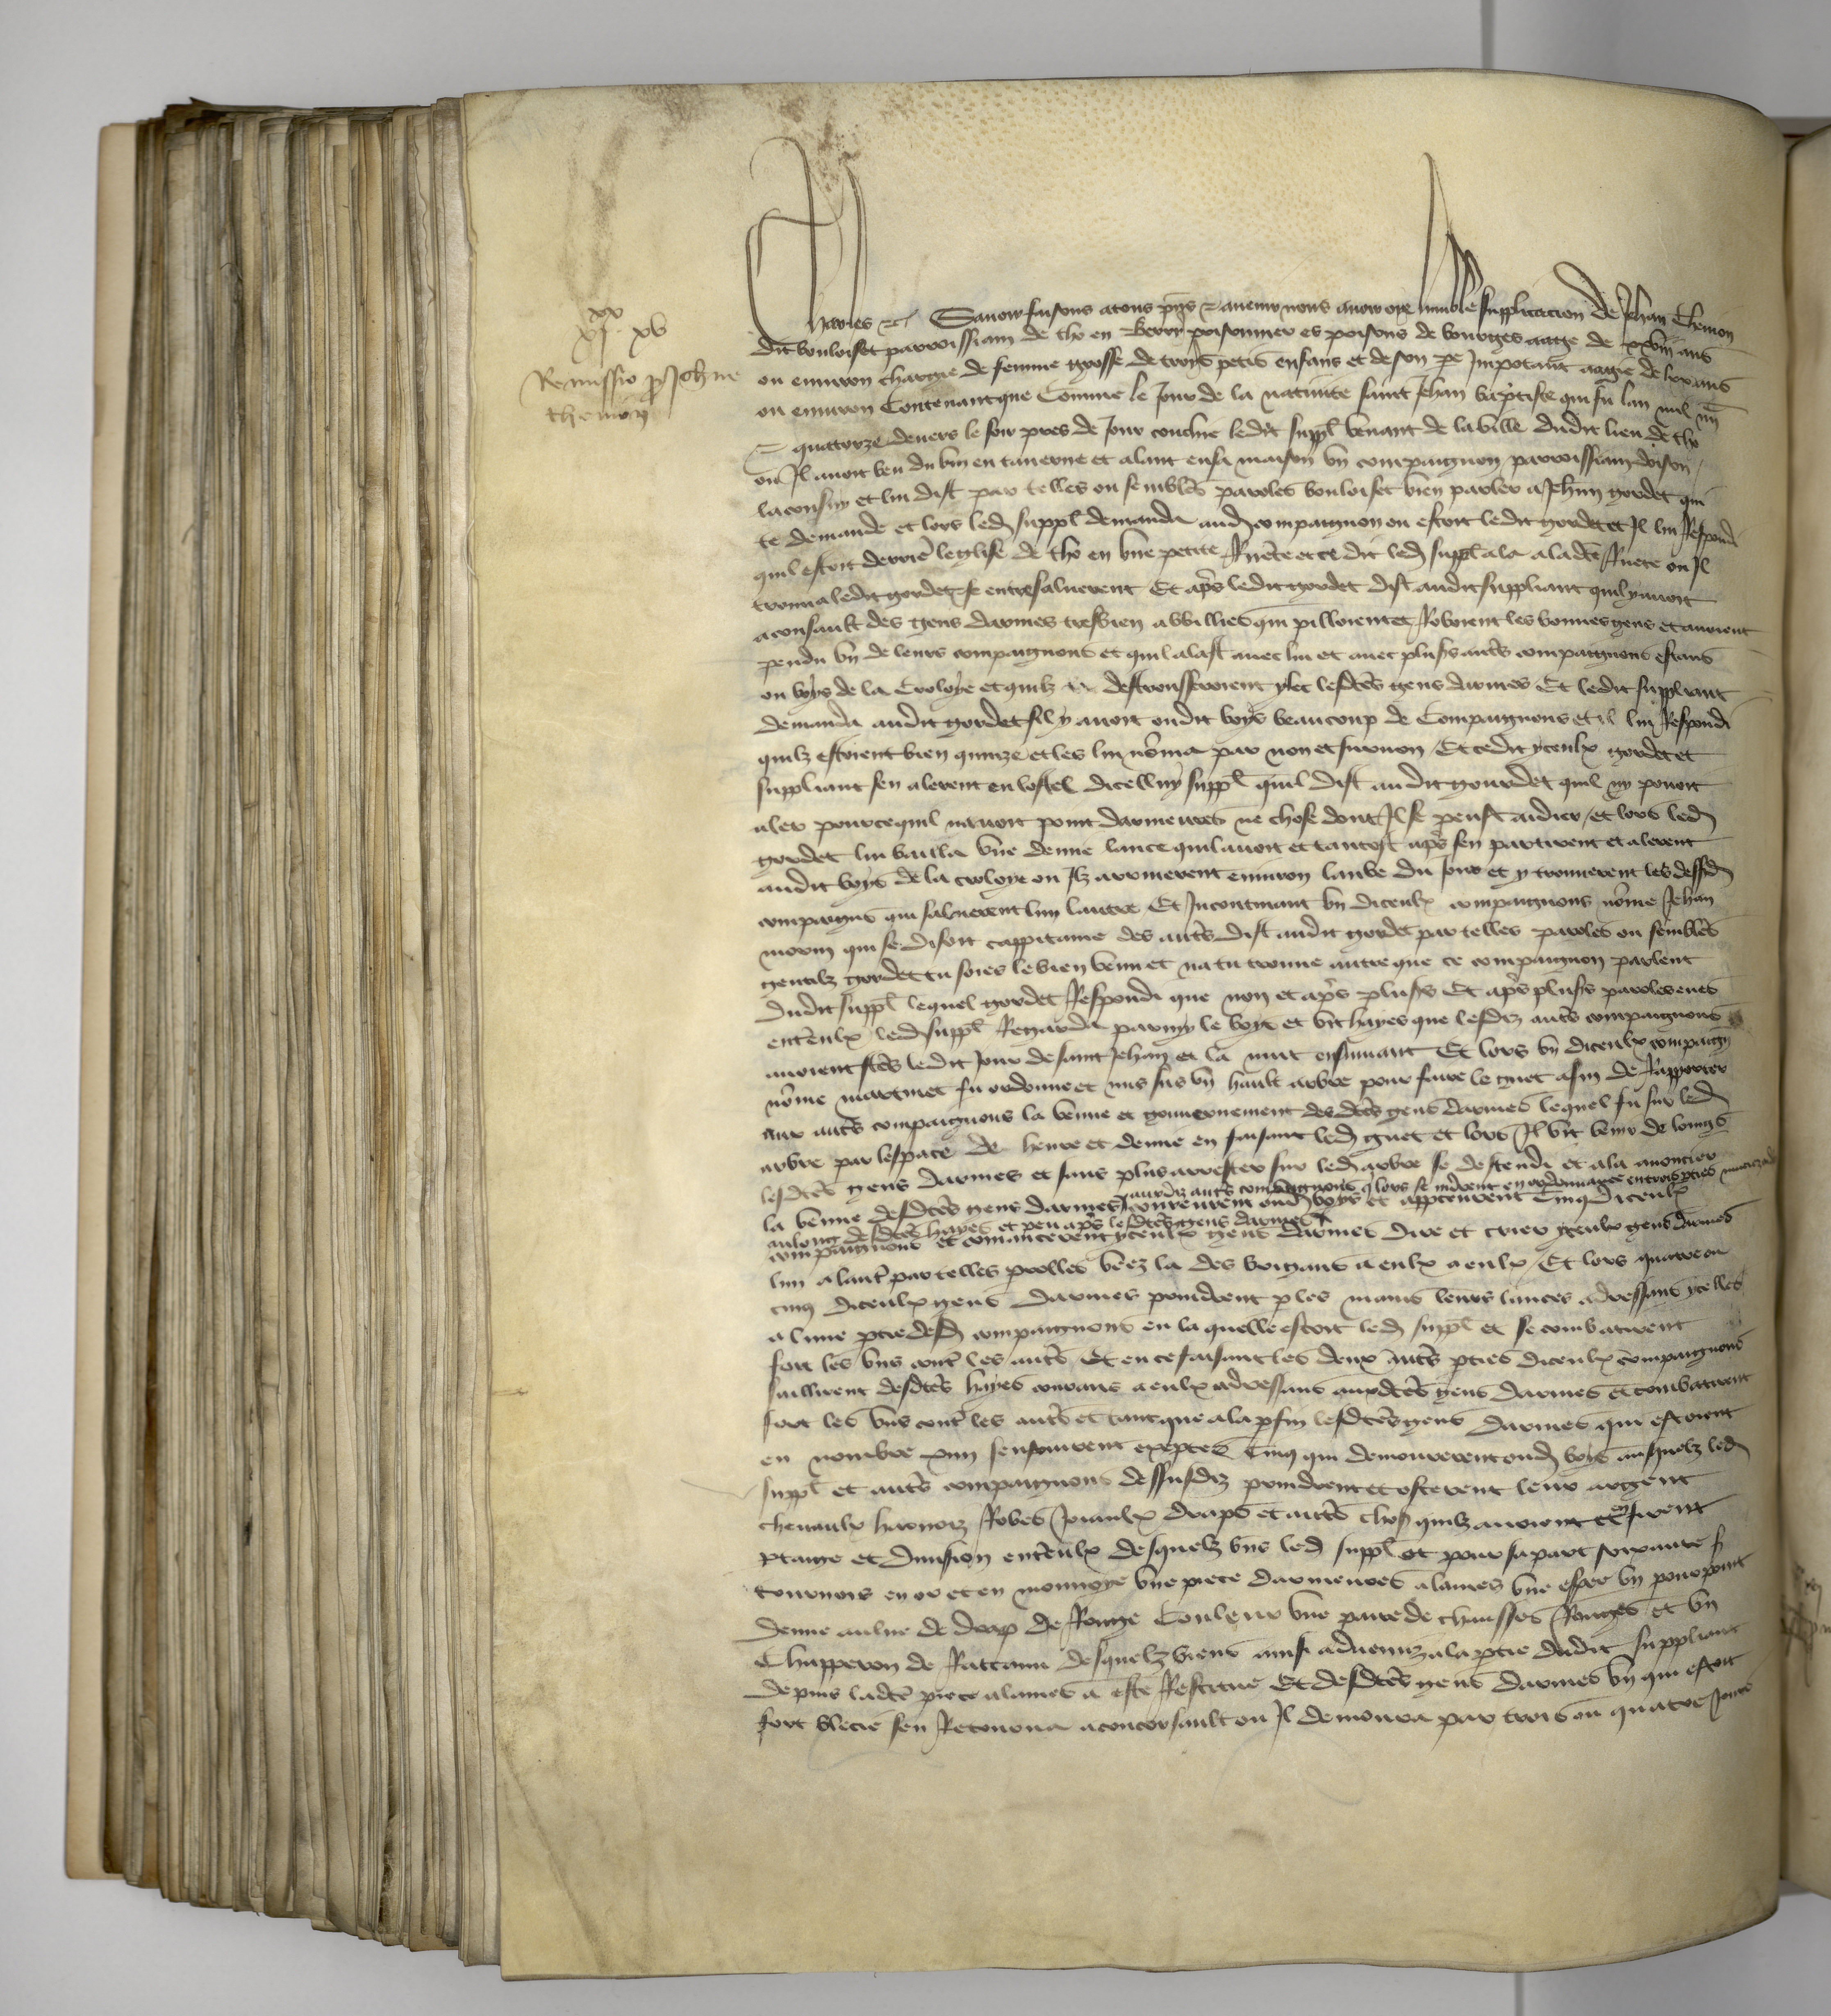 xv
xj. xv
Remissio p Johne
themon
Charles etc Savoir faisons a tous pns et avenir nous avoir oye humble supplicacion de Jehan Themon
dit bouloiset parroissiam de tho en Berry prisonnier es prisons de bourges aage de xxviii ans
ou environ chargie de femme grosse de troys petis enfans et de son pe Impotant aagie de lxx ans
ou environ Contenant que Comme le Jour de la nativite saint Jehan baptiste qui fu lan mil iiii
et quatorze devers le soir pres de Jour couchie ledit suppl venant de la ville dudit lieu de tho
ou Il avoit beu du vin en taverne et alant en sa maison un compaignon parroissiam doison
laconsuy et lui dist par telles ou sembles paroles bouloiset vien parler a Jehan gordet qui
te demande et lors led suppl demanda aud compaignon ou estoit ledit gordet et Il lui Respond
quil estoit derrie leglise de tho en une petite Ruete et ce dit led suppl ala a ladte Ruete ou Il
trouva ledit gordet et se entresaluerent Et aps ledit gordet dist audit suppliant quil y avoit
a consault des gens darmes tresbien abbillies qui pilloient et Roboient les bonnes gens et avoient
pendu un de leurs compaignons et quil alast avec lui et avec plusrs auts compaignons estans
ou boys de la Croloye et quilz destrousseroient ylec lesdtes gens darmes Et ledit suppliant
demanda audit gordet sil y avoit oudit boys beaucoup de Compaignons et il lui Respondi
quilz estoient bien quinze et les lui noma par non et surnon Et ce dit yceulx gordet et
suppliant sen alerent en lostel dicelluy suppl quil dist audit gourdet quil ny pouoit
aler pource quil navoit point darmeures ne chose dont Il se peust aidier / et lors led
gordet lui bailla une demie lance quil avoit et tantost aps sen partirent et alerent
audit boys de la croloye ou Ilz arriverent environ laube du Jour et y trouverent les dessd
compaigns qui saluerent lun lautre Et Incontinant un diceulx compaignons nome Jehan
morin qui se disoit cappitaine des auts dist audit gordet par telles paroles ou sembles
gentilz gordet tu soies le bien venu et na tu trouve autre que ce compaignon parlent
dudit suppl lequel gordet Respondi que non et aps plusrs Et aps plusrs paroles eues
entreulx led suppl Regarda parmy le boys et vit hayes que lesdiz auts compaignons
avoient ftes ledit Jour de saint Jehan et la nuit ensuivant Et lors un diceulx compaign
nome martinet fu ordonne et mis sus un hault arbre pour faire le guet afin de Rapporter
aux auts compaignons la venue et gouvernement desdtes gens darmes lequel fu sur led
arbre par lespace de heure et demie en faisant led guet et lors Il vit venir de loings
lesdtes gens darmes et sans plus arrester sur led arbre se descendi et ala anoncier
la venue desdtes gens darmes / ausdiz auts compaignons q lors se mirent en ordonnance en trois pties
au long desdtes hayes et peu aps lesdtes gens darmes coururent oud boys et appceurent Cinq diceulx
compaignons et comancerent yceulx gens darmes dire et crier yceulx gens darmes
lun a laut par telles prolles veez la des brigans a eulx a eulx / Et lors quatre ou
cinq diceulx gens darmes prindrent p les mains leurs lances adressans ycelles
a lune ptie desd compaignons en la quelle estoit led suppl et se combatirent
fort les uns cont les auts Et en ce faisant les deux auts pties diceulx compaignons
saillirent desdtes hayes courans a eulx adressans auxdtes gens darmes et combatirent
fort les uns cont les auts et tant que a la pfin lesdtes gens darmes qui estoient
en nombre xiiii senfouirent exeptes Cinq qui demourerent oud boys ausquelz led
suppl et auts compaignons dessusdiz prindrent et osterent leur argent
chevaulx harnoiz Robes Joiaulx draps et auts chos quilz avoient et en firent
ptaige et division entreulx desquelz biens led suppl ot pour sa part soixante s
tournois en or et en monnoye une piece darmeures a lames une espee un pourpoint
demie aulne de drap de Rouge Couleur une paire de chausses Rouges et un
Chapperon de desquelz biens ainsi advenuz a la ptie dudit suppliant
depuis ladte piece a lames a este Restitue Et desdtes gens darmes un qui estoit
fort blecie sen Retourna a concorsault ou Il demoura par trois ou quatre Jours